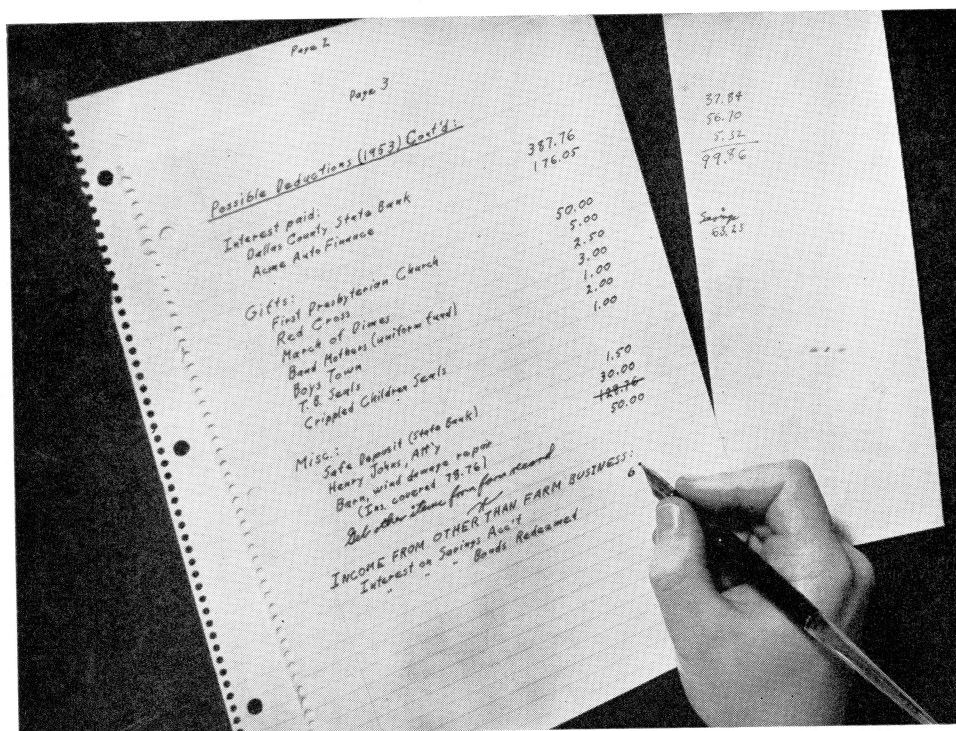 Page 2
Page 3
Possible Deductions (1953) Cont'd:
Interest paid:
Dallas County State Bank 387.76
Acme Auto Finance 176.05
Gifts:
First Presbyterian Church 50.00
Red Cross 5.00
March of Dimes 2.50
Band Mothers (uniform fund) 3.00
Boys Town 1.00
T.B. Seals 2.00
Crippled Children Seals 1.00
Misc.:
Safe Deposit (State Bank) 1.50
Henry Johns, Att'y 30.00
Barn, wind damage repair 128.76
(Ins. covered 78.76) 50.00
Get other items from farm record
INCOME FROM OTHER THAN FARM BUSINESS:
Interest on Savings Acc't 6
" " Bonds Redeemed
37.84
56.70
5.32
99.86
Savings
63.25